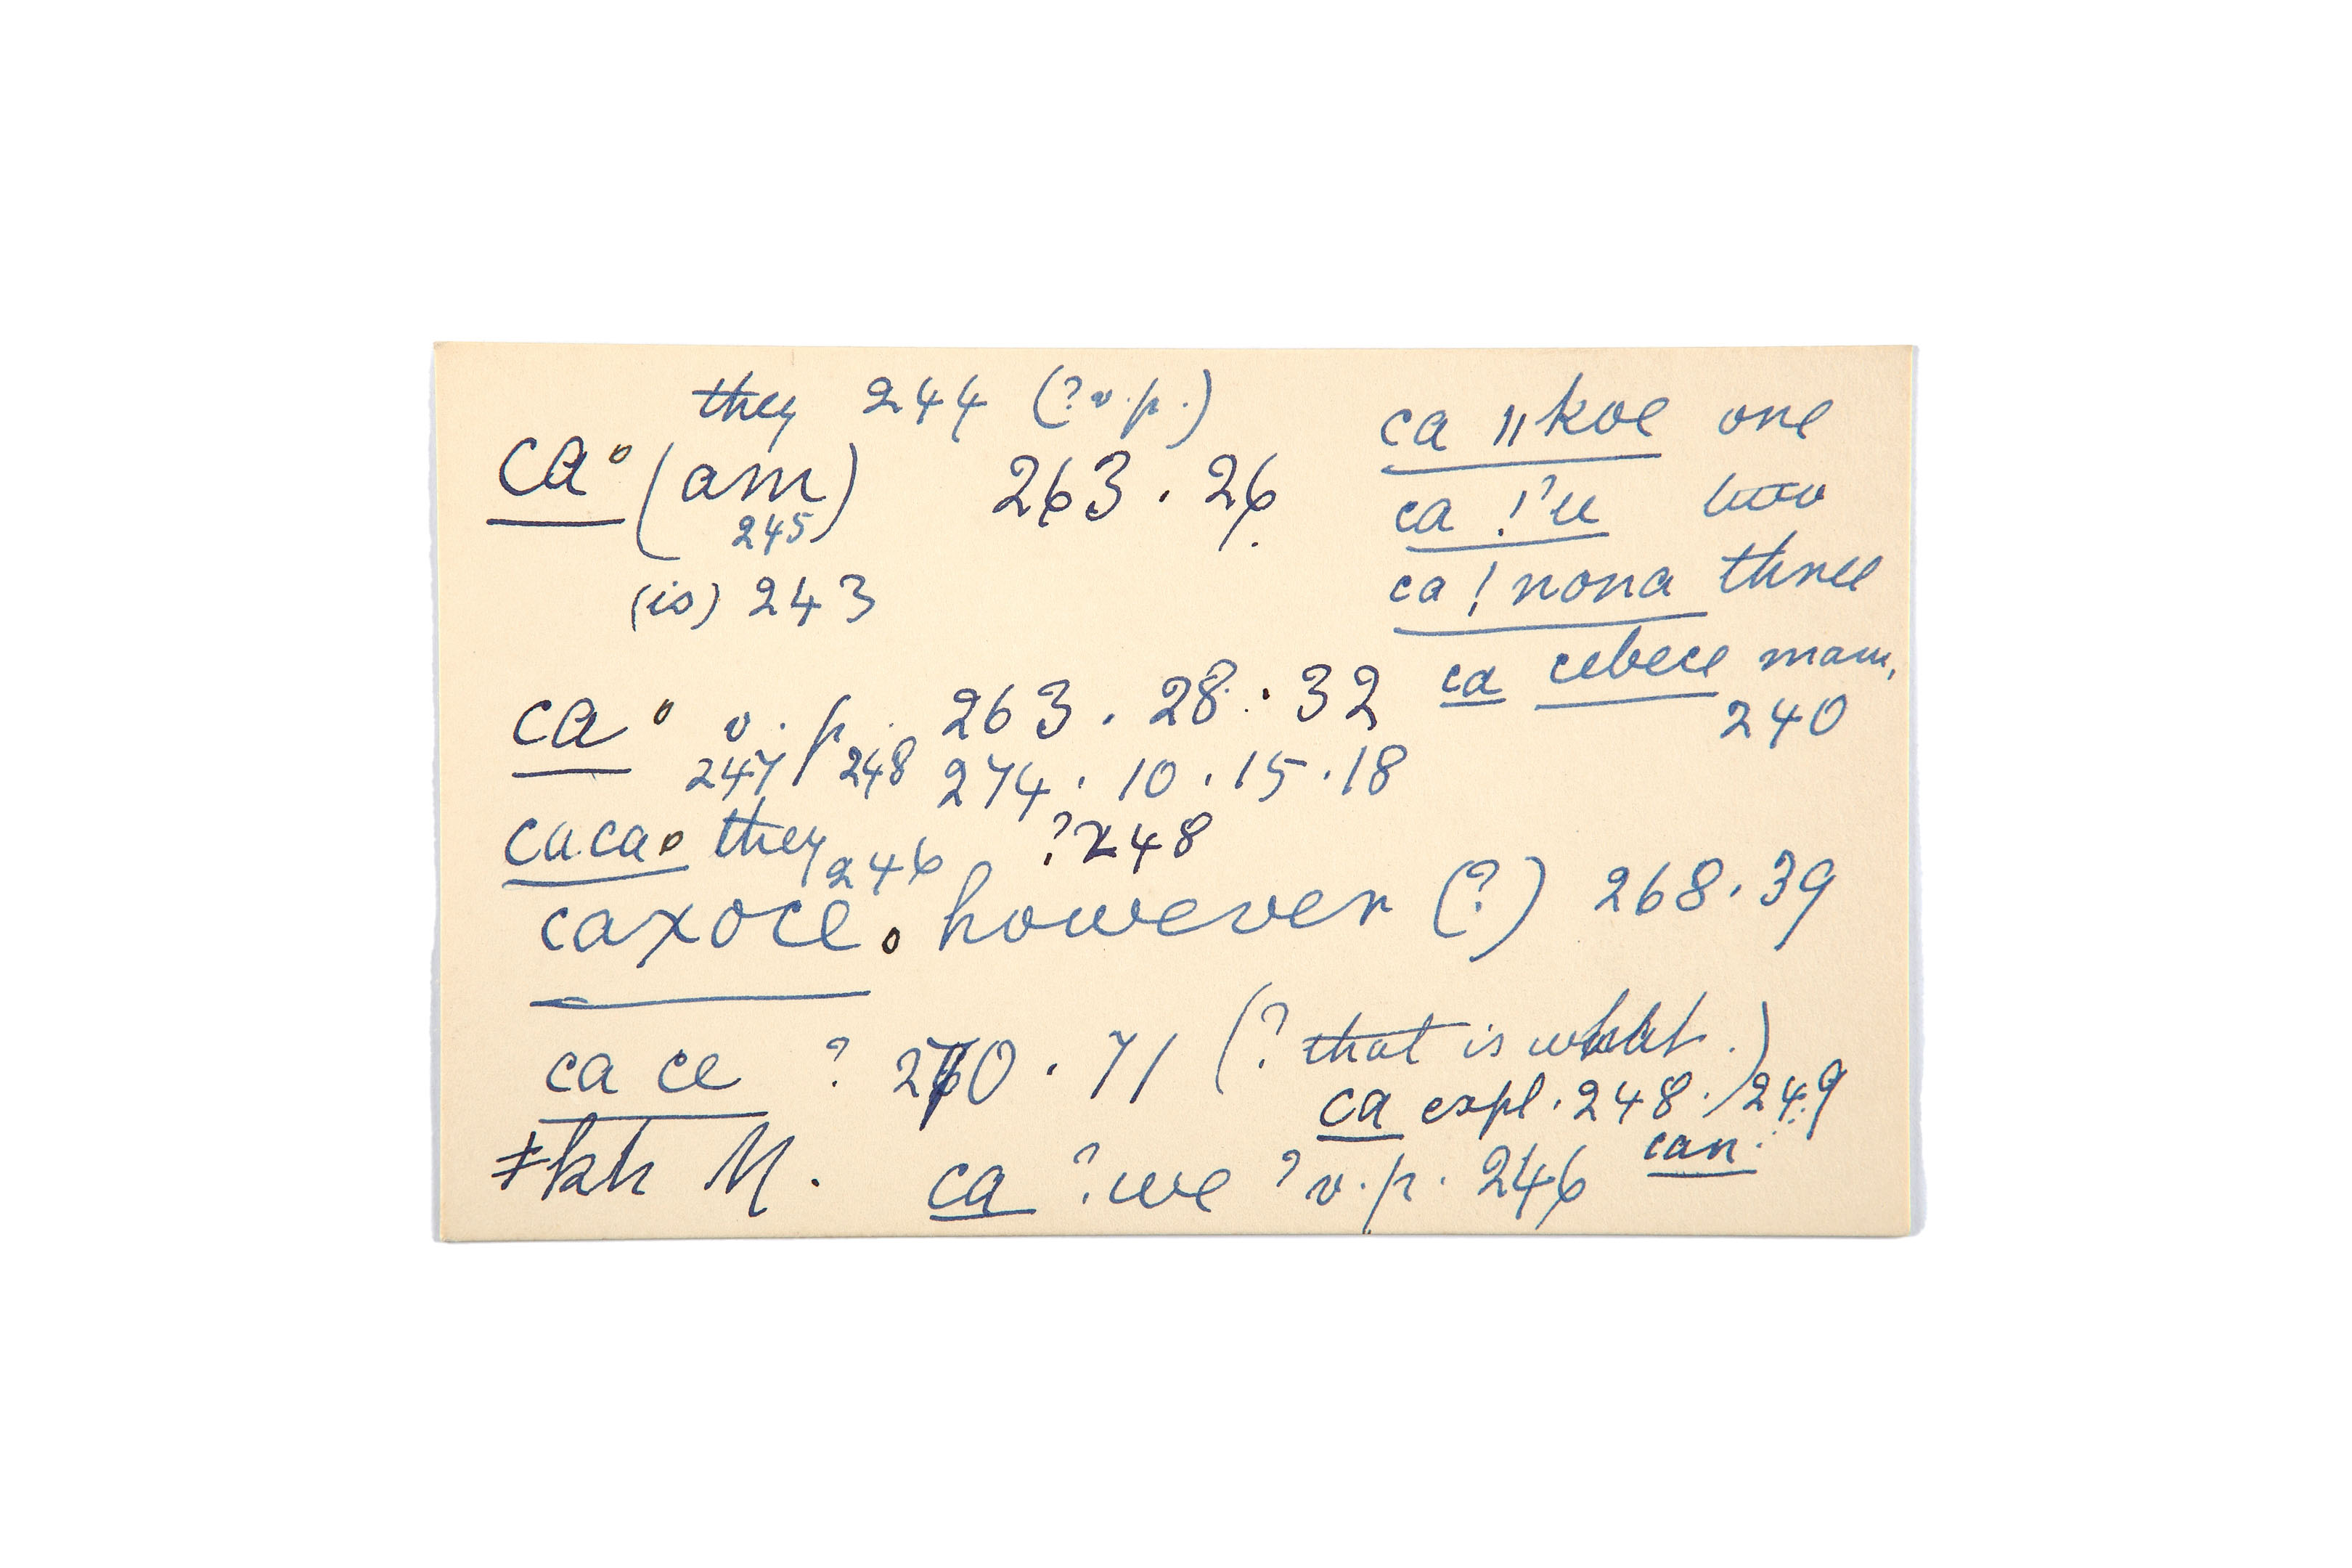 they 244 (? v.p.)
ca° (am) 263. 26
245
(is) 243
ca ǁkoe one
ca !'u two
ca !nona three
ca cebece many,
240
ca° v. p. 263. 28. 32
247 248 274. 10. 15. 18
caca° they 246 ? 248
caxoce. however (?) 268. 39
ca ce ? 270. 71 (? that is what.)
ca expl. 248. 249
can.
ǂkh N. ca ? we ? v.p. 246